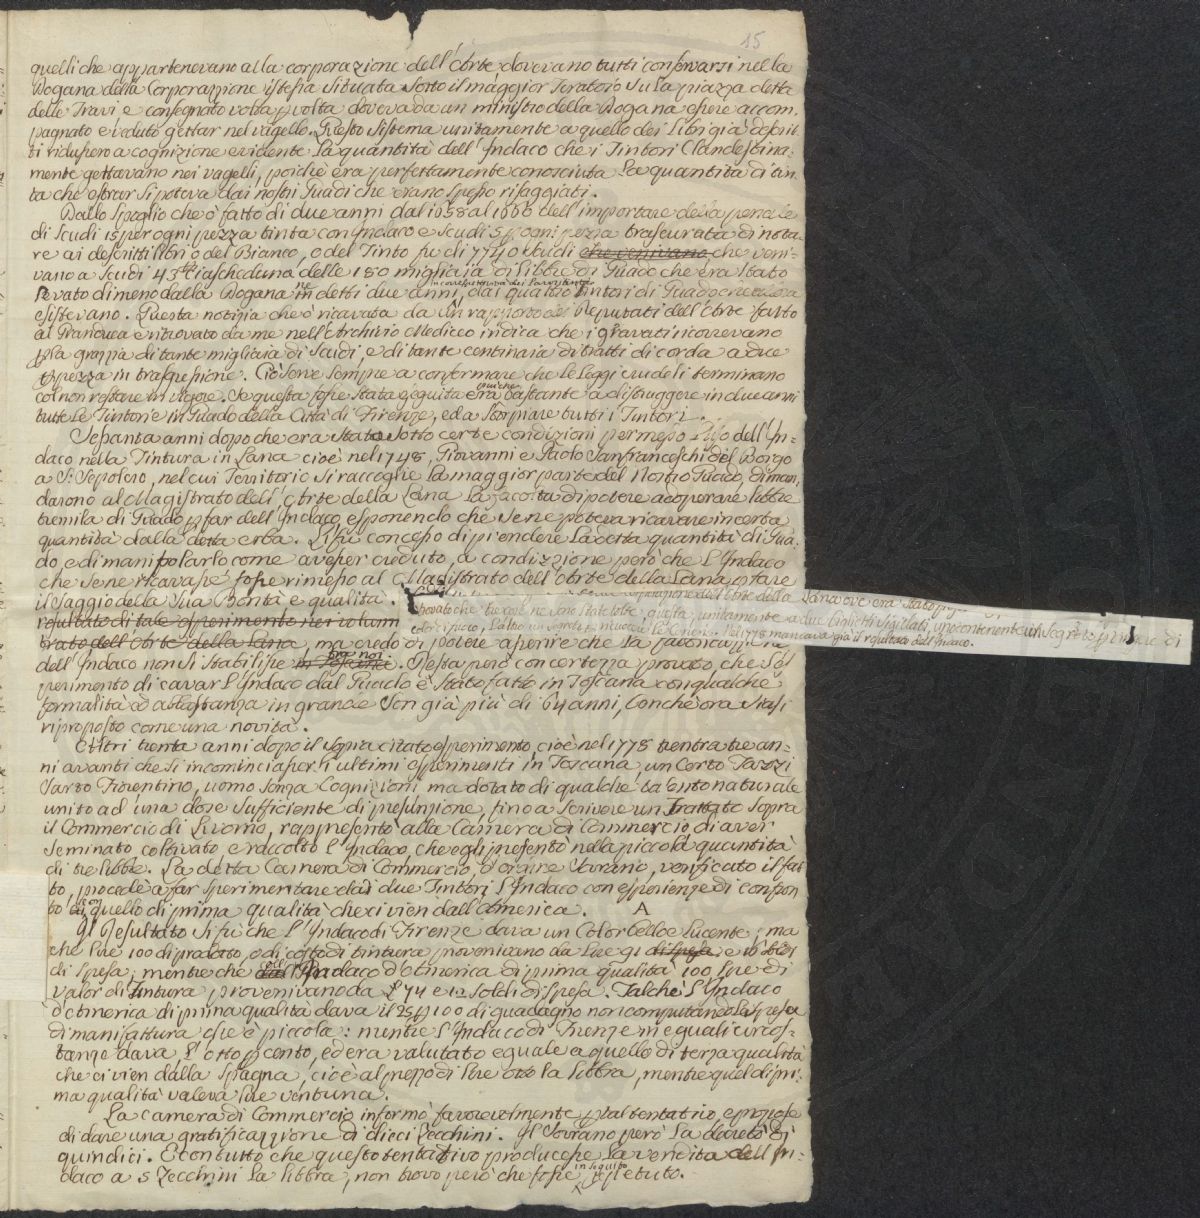 15
quelli che appartenevano alla corporazione dell'Arte dovevano tutti conservarsi nella
Dogana della Corporazzione istessa situata sotto il maggior Tiratoio su la piazza detta
delle Travi e consegnato volta p volta doveva da un ministro della Dogana essere accom,
pagnato e veduto gettar nel vagello. Questo sistema unitamente a quello dei Libri già descrit
ti ridussero a cognizione evidente la quantità dell'Indaco che i Tintori Clandestina=
mente gettavano nei vagelli, poichè era perfettamente conosciuta la quantità di tin
ta che estrar si poteva dai nostri Guadi che erano spesso risaggiati.
Dallo Spoglio che ò fatto di due anni dal 1658 al 1660 dell'importare della pena le
di Scudi 15 per ogni pezza tinta con Indaco e Scudi 5 p ogni pezza trascurata di nota
re ai descritti libri o del Bianco, o del Tinto fu di 7740 Scudi che venivano che veni=
vano a Scudi 43 ciascheduna delle 180 migliaia di Libbre di Guado che era stato
levato di meno dalla Dogana in detti due anni, dai quattro Tintori di Guado che allora
esistevano. Questa notizia che ò ricavata da un rapporto dei Deputati dell'Arte fatto
al Granduca e ritrovato da me nell'Archivio Mediceo indica che i gravati ricorrevano
p la grazzia di tante migliaia di Scudi, e di tante centinaia di tratti di corda a due
p pezza in trasgressione. Ciò serve sempre a confermare che le Leggi crudeli terminano
col non restare in vigore. Se questa fosse stata eseguita era bastante a distruggere in due anni
tutte le Tintorie in Guado della Città di Firenze, ed a storpiare tutti i Tintori.
Sessanta anni dopo che era stato sotto certe condizioni permesso l'uso dell'In=
daco nella Tintura in Lana cioè nel 1748, Giovanni e Paolo Sanfranceschi del Borgo
a S: Sepolcro, nel cui Territorio si raccoglie la maggior parte del Nostro Guado, diman,
darono al Magistrato dell'Arte della Lana la facoltà di potere adoperare libbre
tremila di Guado p far dell'Indaco, esponendo che se ne poteva ricavare in certa
quantità dalla detta erba. Li fu concesso di prendere la detta quantità di Gua=
do, e di manipolarlo come avesser creduto, a condizzione però che l'Indaco
che se ne ricavasse fosse rimesso al Magistrato dell'Arte della Lana p fare
il saggio della sua Bontà e qualità.
dell'Arte della Lana ove era stato
trovato che tre cose ne sono state tolte, questa, unitamente a due biglietti sigillati, uno contenente un Segreto p tingere di
nel 1778 mancava già il resultato dell'Indaco.
resultato di tale esperimento nei volumi
brato dell'Arte della Lana, ma credo di potere asserire che la fabbricazzione
dell'Indaco non si stabilisse in Toscana. Resta però con certezza provato, che l'es
perimento di cavar l'Indaco dal Guado è stato fatto in Toscana con qualche
formalità ed abbastanza in grande son già più di 64 anni, benchè ora siasi
riproposto come una novità.
Altri trenta anni dopo il sopra citato esperimento, cioè nel 1778 trentatre an=
ni avanti che si incominciasser li ultimi esperimenti in Toscana, un certo Tazzi
Sarto Fiorentino, uomo senza Cognizioni ma dotato di qualche talento naturale
unito ad una dose sufficiente di presunzione, fino a scrivere un Trattato sopra
il Commercio di Livorno, rappresentò alla Camera di Commercio, di aver
seminato coltivato e raccolto l'Indaco, che egli presentò nella piccola quantità
di tre libbre. La detta Camera di Commercio, d'ordine Sovrano, verificato il fat
to, procedè a far sperimentare da due Tintori l'Indaco con esperienze di confron
to con quello di prima qualità che ci vien dall'America. A
Il Resultato si fu che l'Indaco di Firenze dava un Color bello e lucente; ma
che lire 100 di prodotto, o di costo di tintura provenivano da Lire 91 di Spesa e 10 soldi
di spesa; mentre che coll'Indaco d'America di prima qualità 100 lire di
valor di Tintura provenivano da £ 74 e 12 soldi di Spesa. Talchè l'Indaco
d'America di prima qualità dava il 25 p 100 di guadagno non computando la spesa
di manifattura che è piccola: mentre l'Indaco di Firenze in eguali circos=
tanze dava l'otto p cento, ed era valutato eguale a quello di terza qualità
che ci vien dalla Spagna, cioè al prezzo di lire otto la libbra, mentre quel di pri=
ma qualità valeva lire ventuna.
La camera di Commercio informò favorevolmente p tal tentativo, e propose
di dare una gratificazzione di dieci Zecchini. Il Sovrano però la decretò di
quindici. E con tutto che questo tentativo producesse la vendita dell'In=
daco a 5 Zecchini la libbra, non trovo però che fosse in seguito ripetuto.